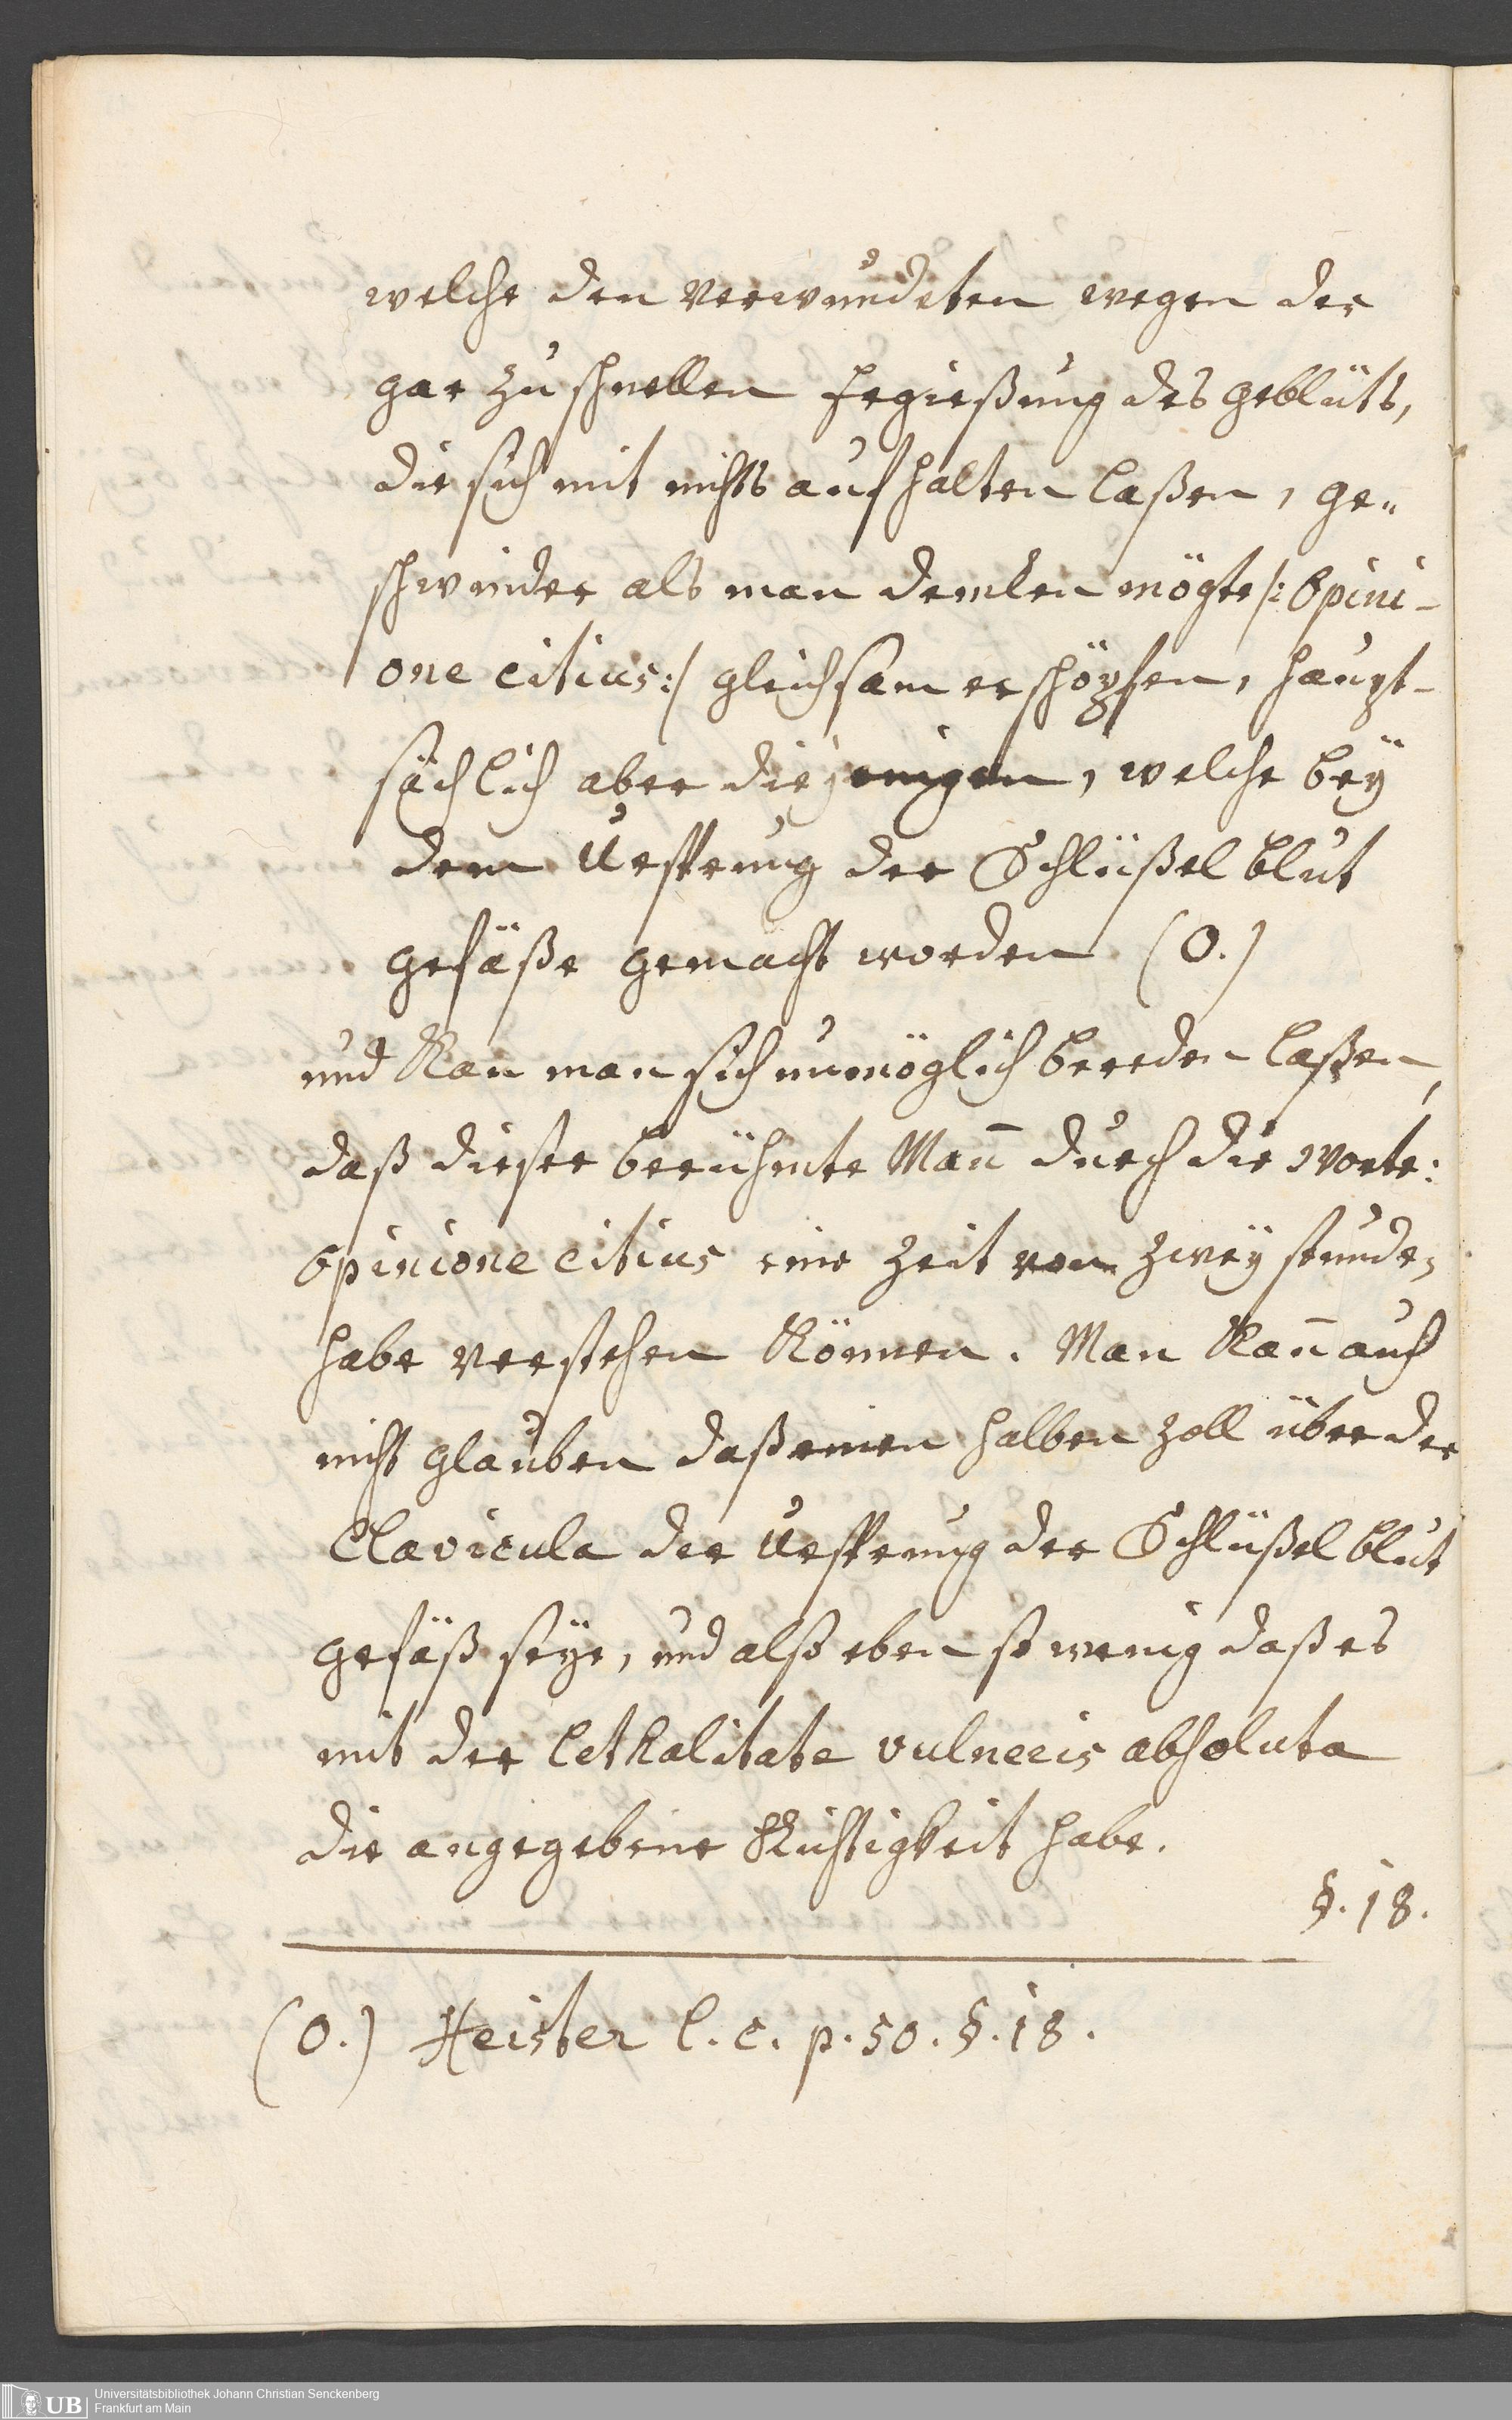 welche den verwundeten wegen der
gar zu schnellen Ergießung des geblüts,
die sich mit nichts aufhalten laßen, ge„
schwinder als man dencken mögte /: Opini-
one citius :/ gleichsam erschöpfen, haupt-
sächlich aber diejenigen, welche beÿ
dem Ursprung der Schlüßel blut
gefäße gemacht worden (O.)
und Kan man sich unmöglich bereden laßen,
daß dieser berühmte Mañ durch die Worte:
Opinione citius eine Zeit von zweÿ stunden
habe verstehen Können. Man Kañ auch
nicht glauben daß einen halben Zoll über der
Clavicula der Ursprung der Schlüßel blut
gefäß seÿe, und alß eben so wenig daß es
mit der lethalitate vulneris absoluta
die angegebene Richtigkeit habe.
§. 18.
(O.) Heister l. c. p. 50. §. 18.
UB Universitätsbibliothek Johann Christian Senckenberg
Frankfurt am Main